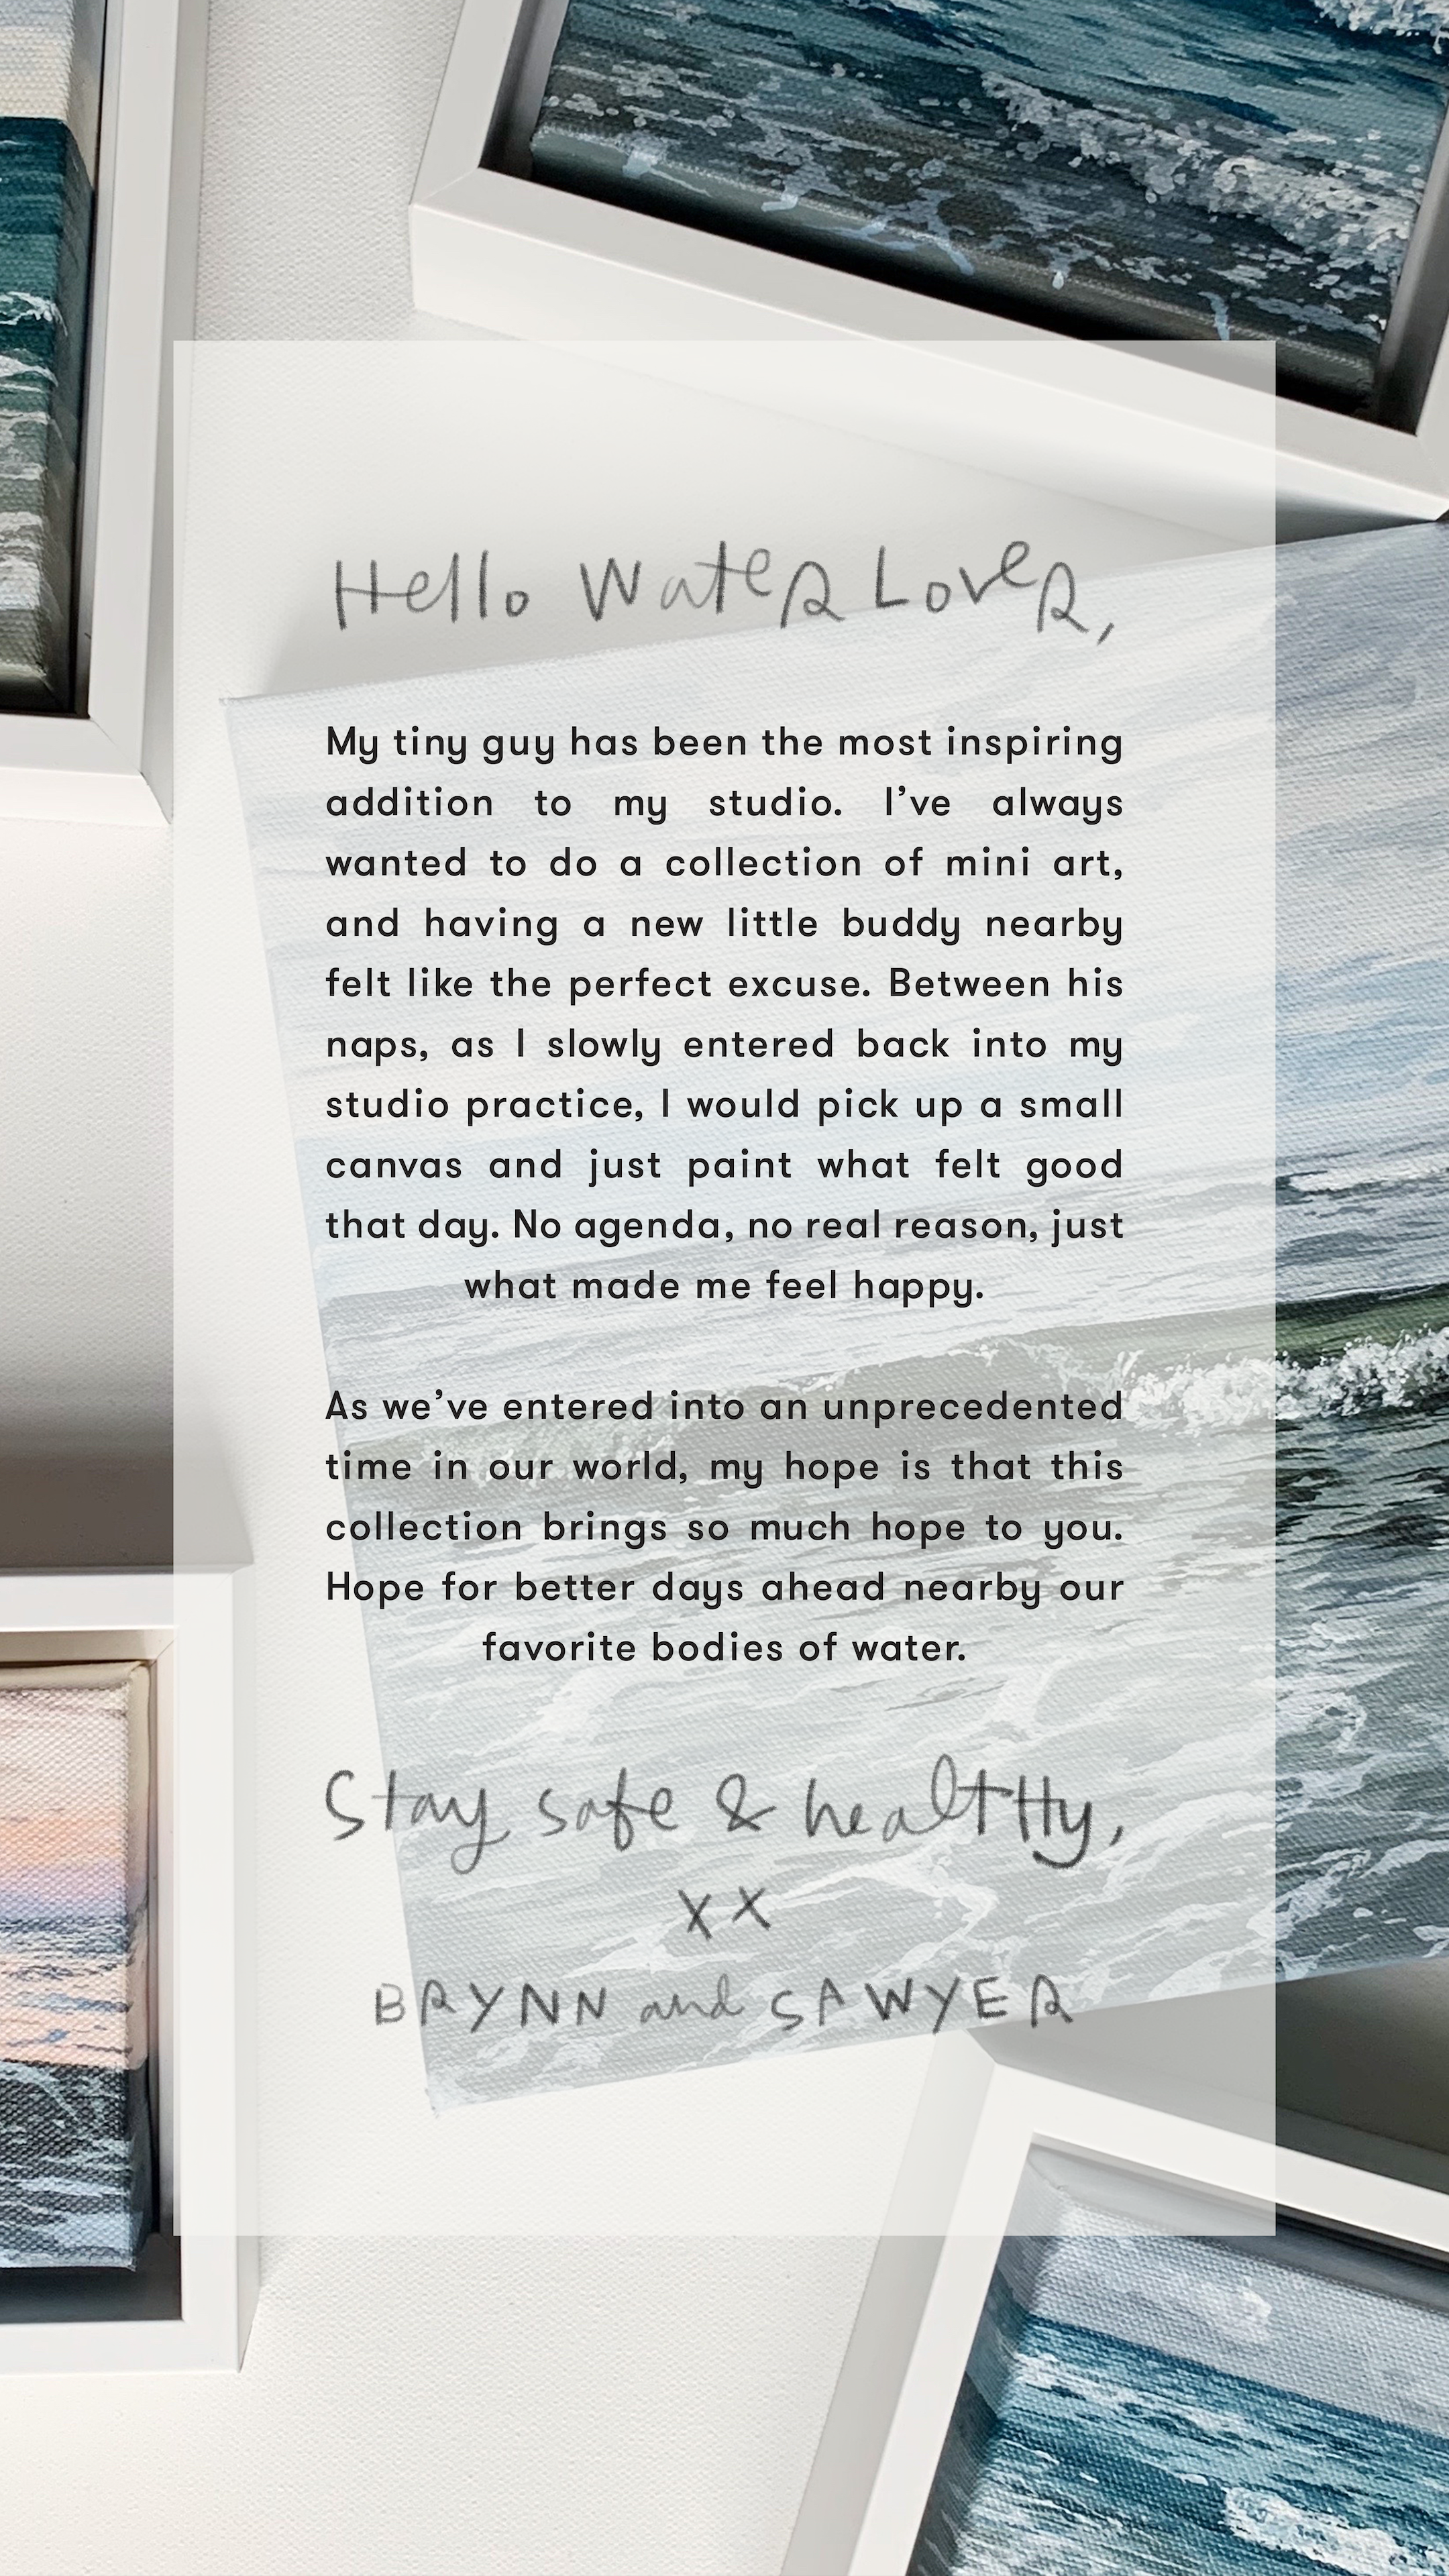 Hello Water Lover,
My tiny guy has been the most inspiring
addition to my studio. I’ve always
wanted to do a collection of mini art,
and having a new little buddy nearby
felt like the perfect excuse. Between his
naps, as I slowly entered back into my
studio practice, I would pick up a small
canvas and just paint what felt good
that day. No agenda, no real reason, just
what made me feel happy.
As we’ve entered into an unprecedented
time in our world, my hope is that this
collection brings so much hope to you.
Hope for better days ahead nearby our
favorite bodies of water.
Stay safe & healtHy,
xx
BRYNN and SAWYER